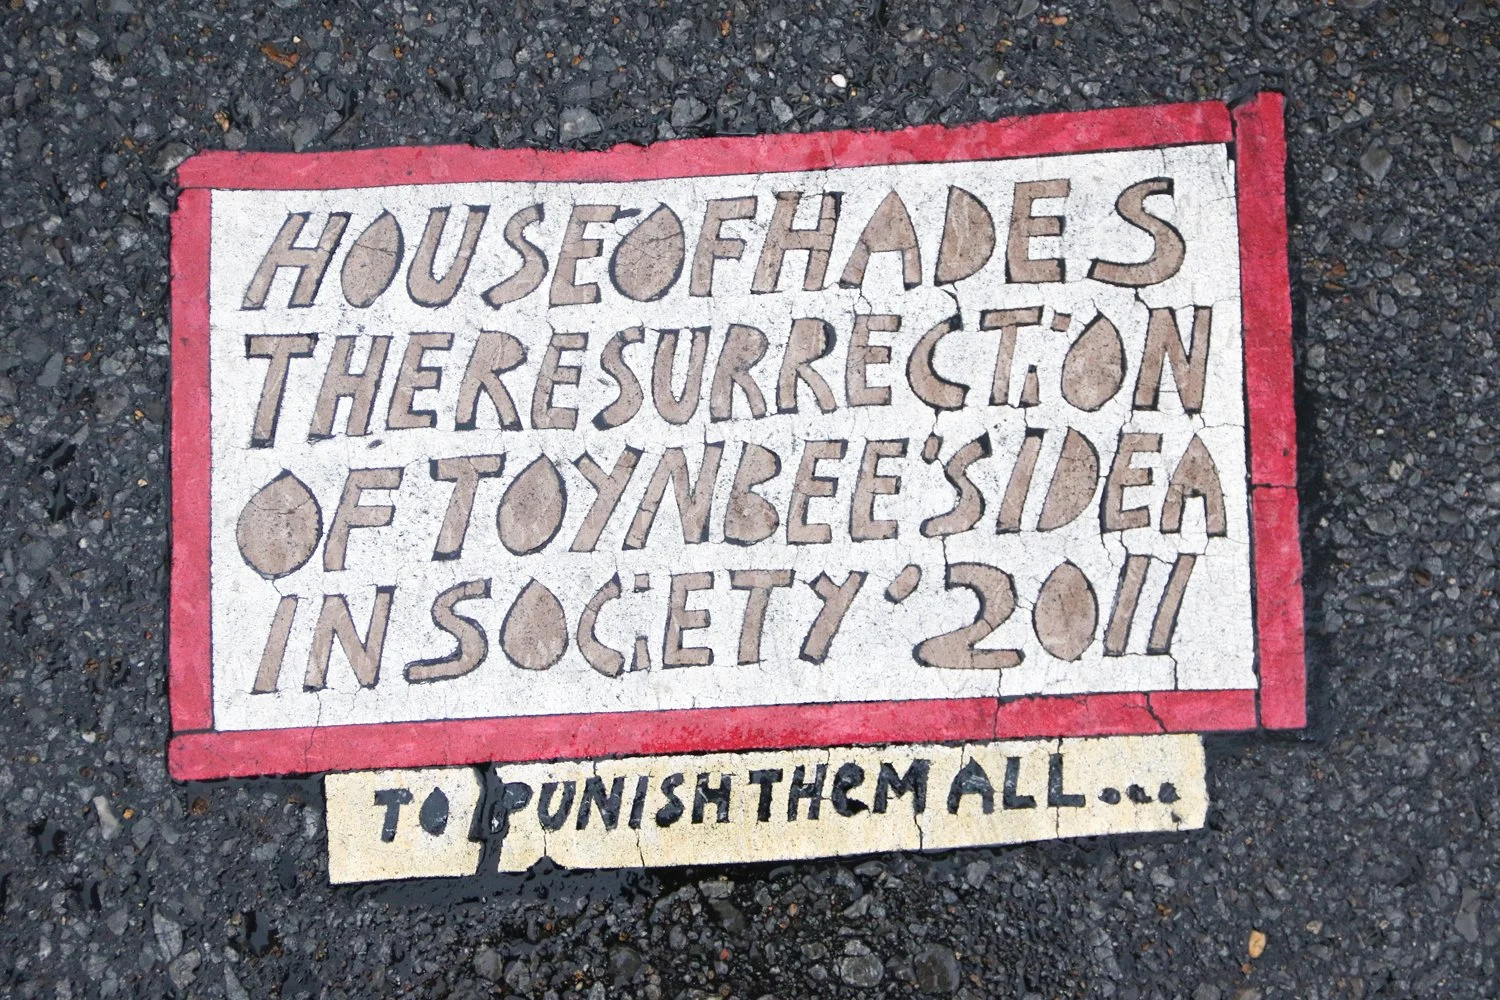 HOUSE OF HADES
THE RESURRECTION
OF TOYNBEE'S IDEA
IN SOCIETY '2011
TO PUNISH THEM ALL...